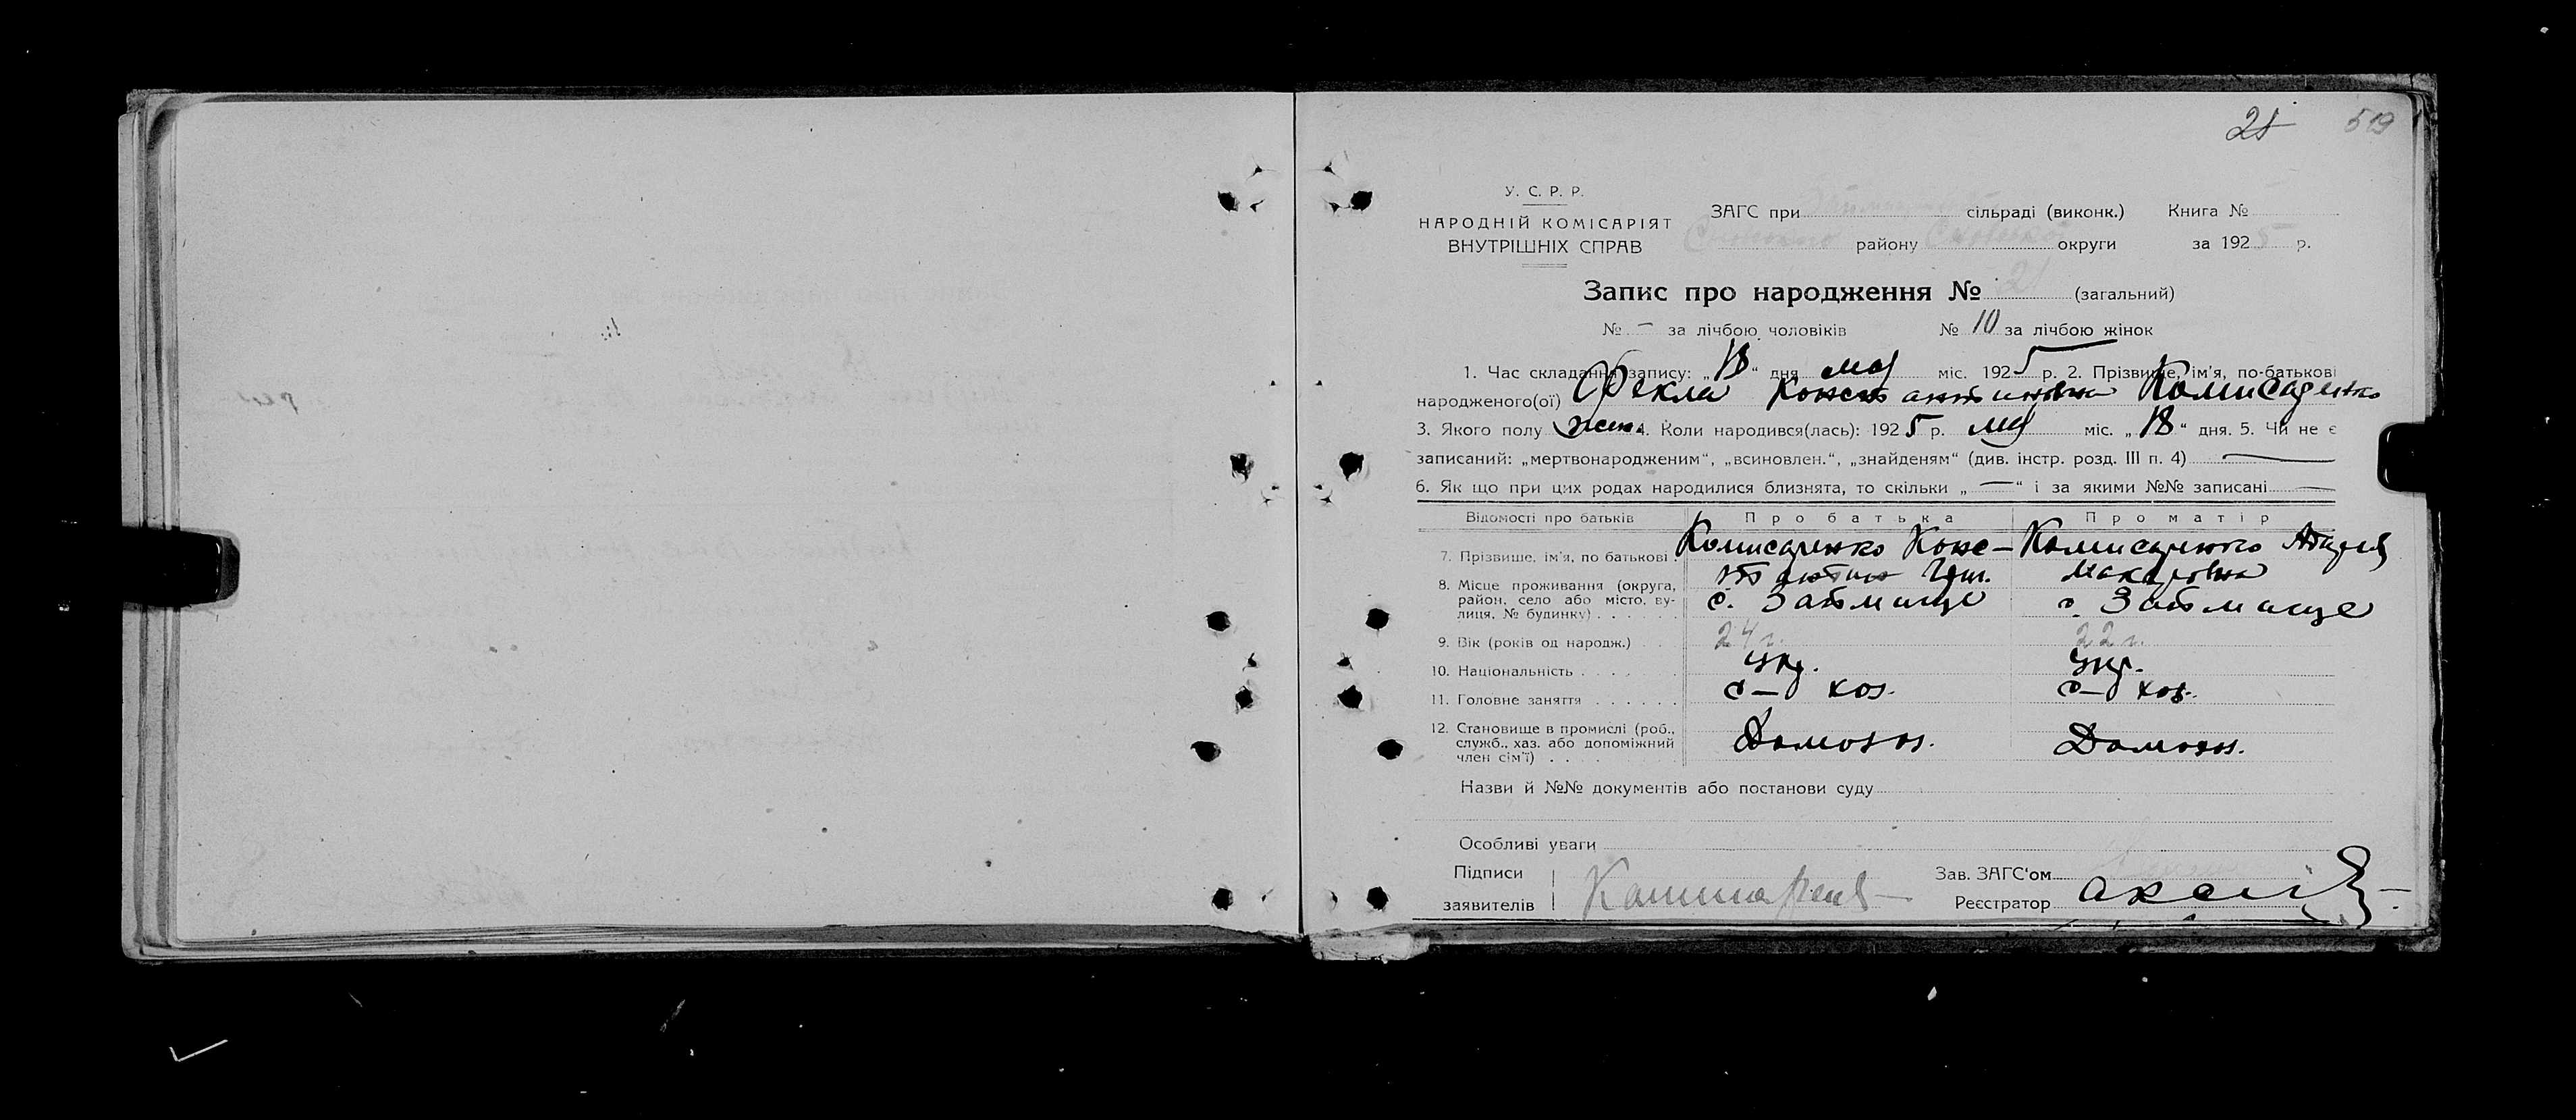 21 519
У. С. Р. Р.
НАРОДНІЙ КОМІСАРІЯТ
ВНУТРІШНІХ СПРАВ
ЗАГС при сільраді (виконк.) Книга №
району округи за 1925 р.
Запис про народження № 21 (загальний)
№ — за лічбою чоловіків № 10 за лічбою жінок
1. Час складання запису: „18“ дня мая міс. 1925 р. 2. Прізвище, ім'я, по-батькові
народженого(ої) Фекла Константиновна Комисаренко
3. Якого полу жен. 4. Коли народився(лась): 1925 р. мая міс. „18“ дня. 5. Чи не є
записаний: „мертвонародженим“, „всиновлен.“, „знайденям“ (див. інстр. розд. III п. 4) —
6. Як що при цих родах народилися близнята, то скільки „—“ і за якими №№ записані —
Відомості про батьків Про батька Про матір
7. Прізвище, ім'я, по батькові Комисаренко Конс- Комисаренко
тантин Гри. Макаровна
8. Місце проживання (округа, район, село або місто, вулиця, № будинку) с. Займище с. Займище
9. Вік (років од народж.) 24 г. 22 г.
10. Національність Укр. Укр.
11. Головне заняття с-хоз. с-хоз.
12. Становище в промислі (роб., служб., хаз. або допоміжний член сім'ї) Домохоз. Домохоз.
Назви й №№ документів або постанови суду
Особливі уваги
Підписи Зав. ЗАГС'ом
заявителів Реєстратор